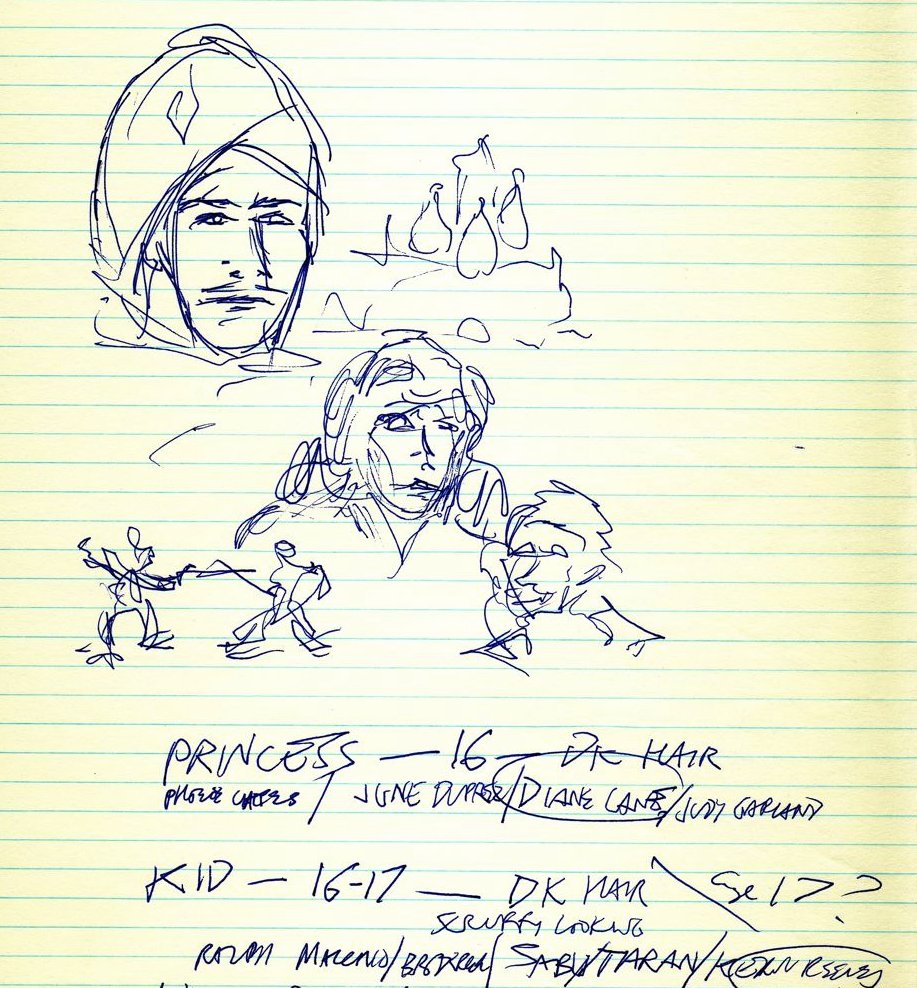 PRINCESS — 16 — DK HAIR
PHOEBE CATES / JUNE DUPREZ / DIANE LANE / JUDY GARLAND
KID — 16-17 — DK HAIR
SCRUFFY LOOKING
RALPH MACCHIO / / SABU / TARAN / KEANU REEVES